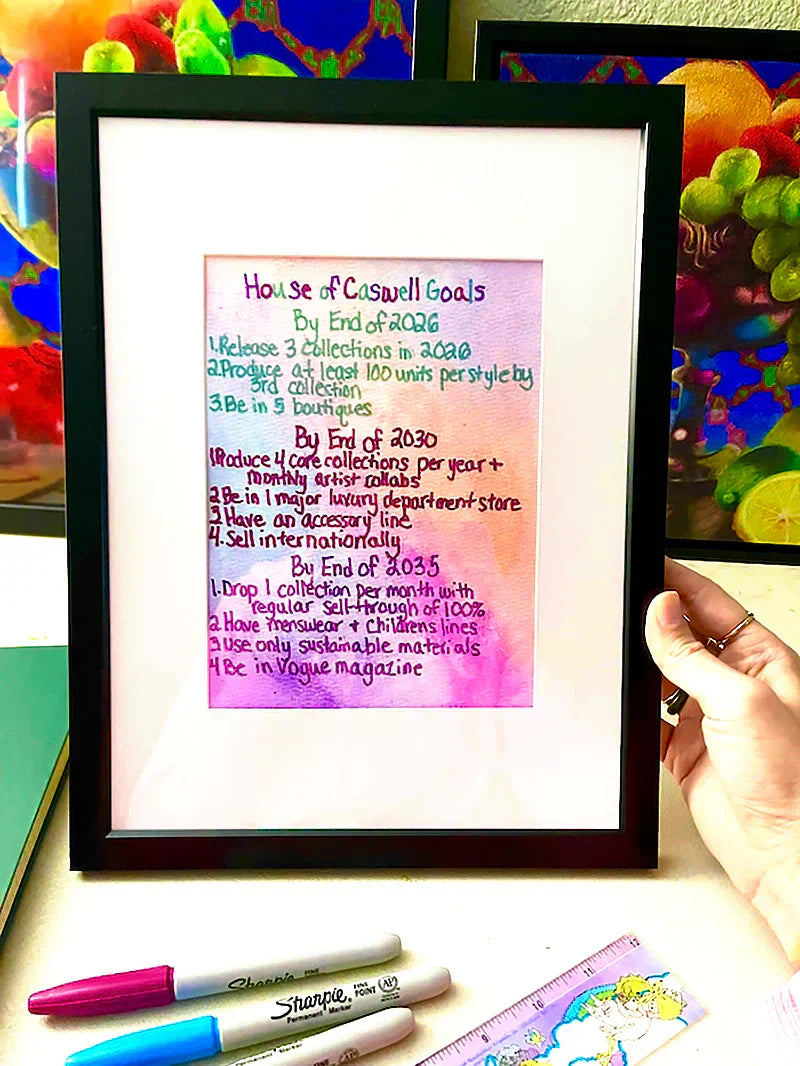 House of Caswell Goals
By End of 2026
1. Release 3 collections in 2026
2. Produce at least 100 units per style by
3rd collection
3. Be in 5 boutiques
By End of 2030
1. Produce 4 core collections per year +
monthly artist collabs
2. Be in 1 major luxury department store
3 Have an accessory line
4. Sell internationally
By End of 2035
1. Drop 1 collection per month with
regular sell-through of 100%
2 Have menswear + Childrens lines
3 Use only sustainable materials
4 Be in Vogue magazine
Sharpie. FINE
Sharpie. FINE POINT AP
Permanent Marker
Permanent Marker
9 10 11 12